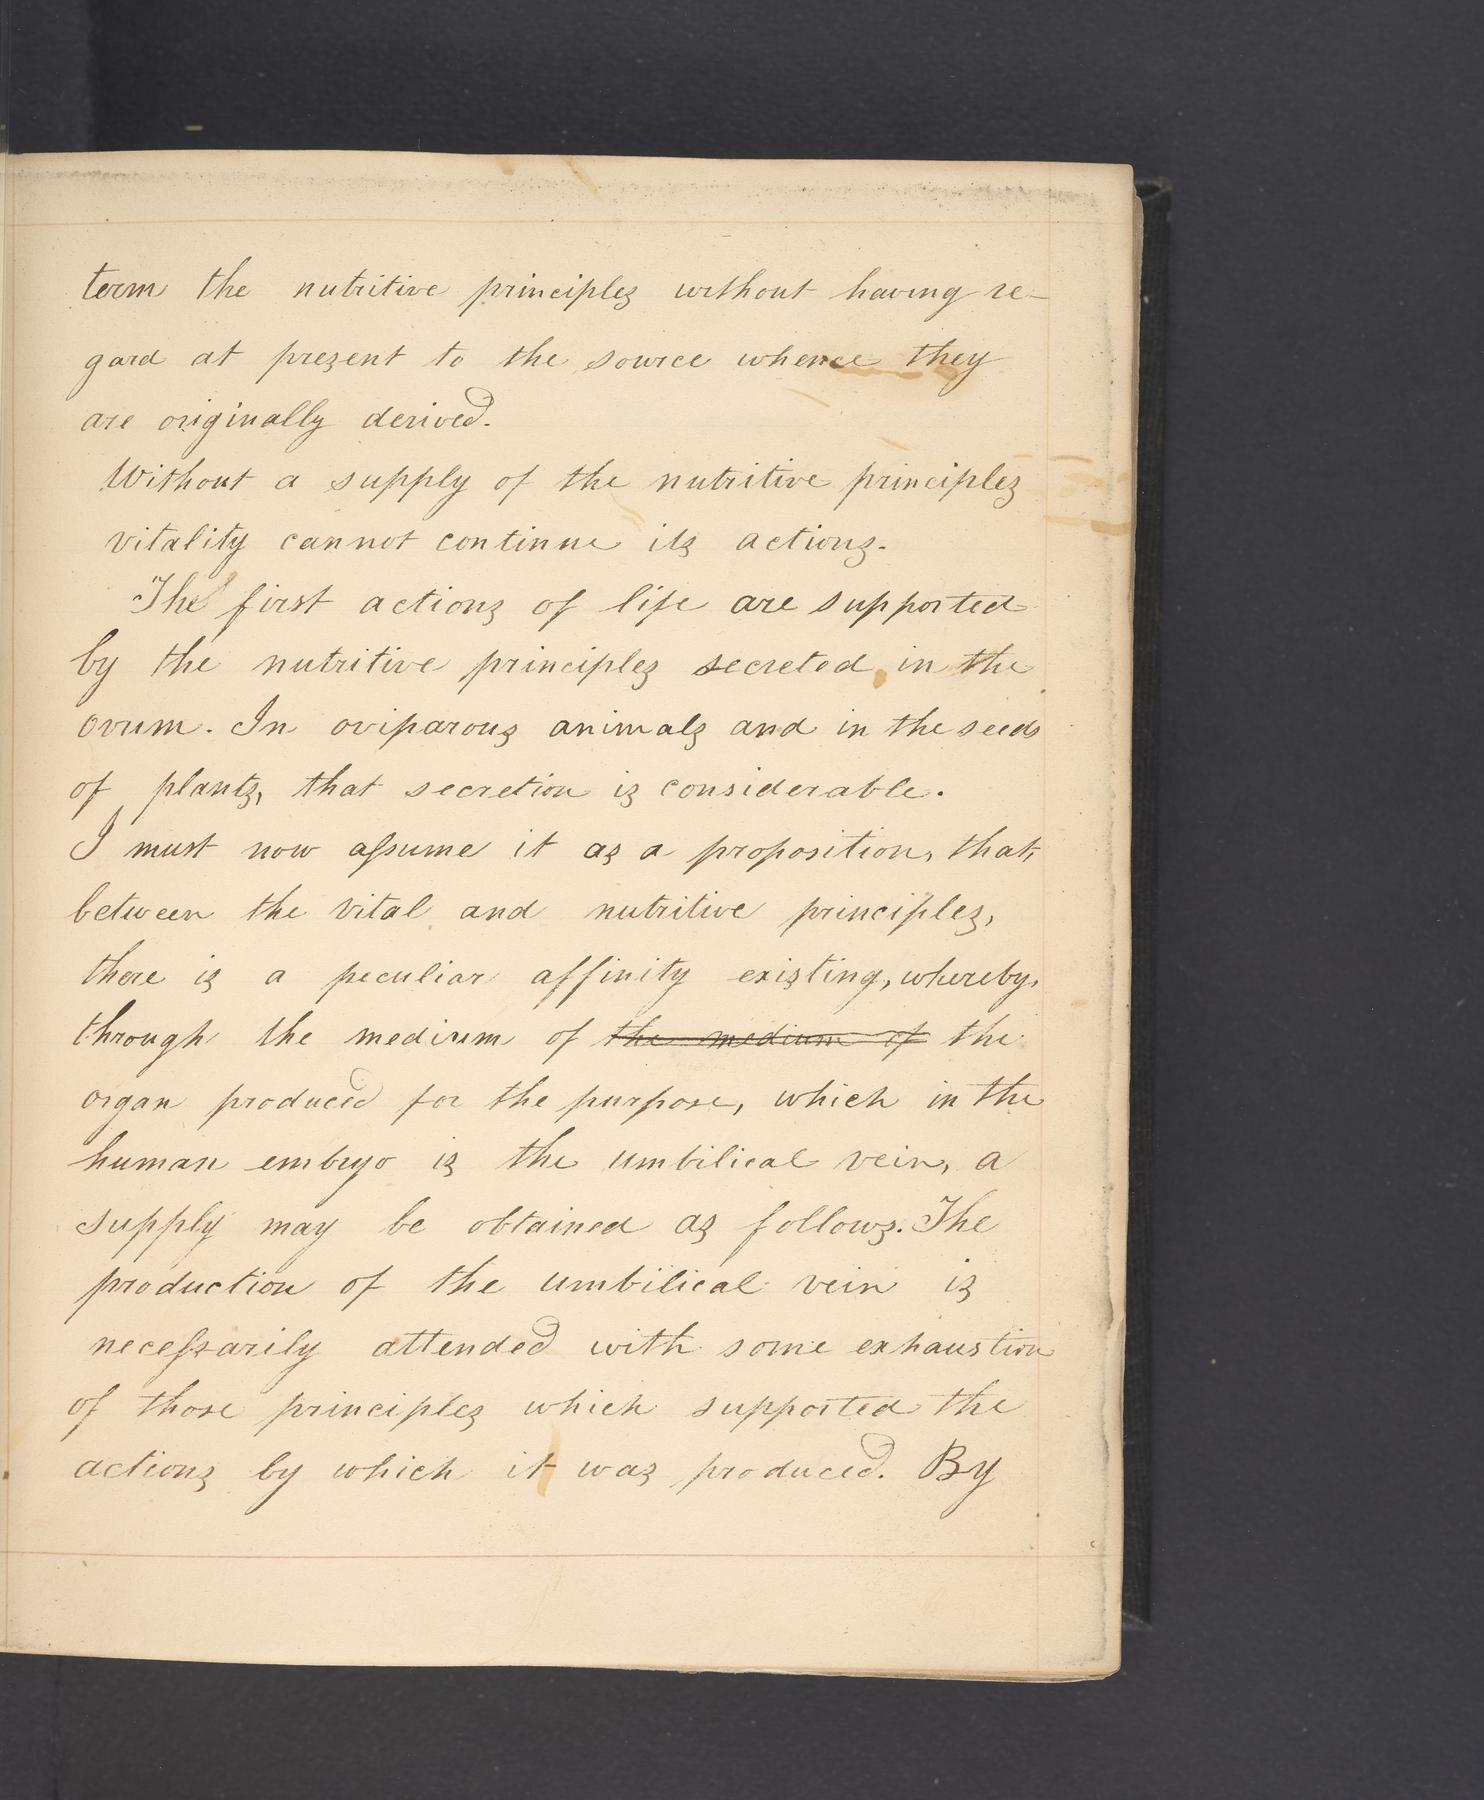 term the nutritive principles without having re-
gard at present to the source whence they
are originally derived.
Without a supply of the nutritive principles
vitality cannot continue its actions.
The first actions of life are supported
by the nutritive principles secreted in the
ovum. In oviparous animals and in the seeds
of plants, that secretion is considerable.
I must now aſsume it as a proposition, that,
between the vital and nutritive principles,
there is a peculiar affinity existing, whereby,
through the medium of the medium of the
organ produced for the purpose, which in the
human embryo is the umbilical vein, a
supply may be obtained as follows. The
production of the umbilical vein is
neceſsarily attended with some exhaustion
of those principles which supported the
actions by which it was produced. By